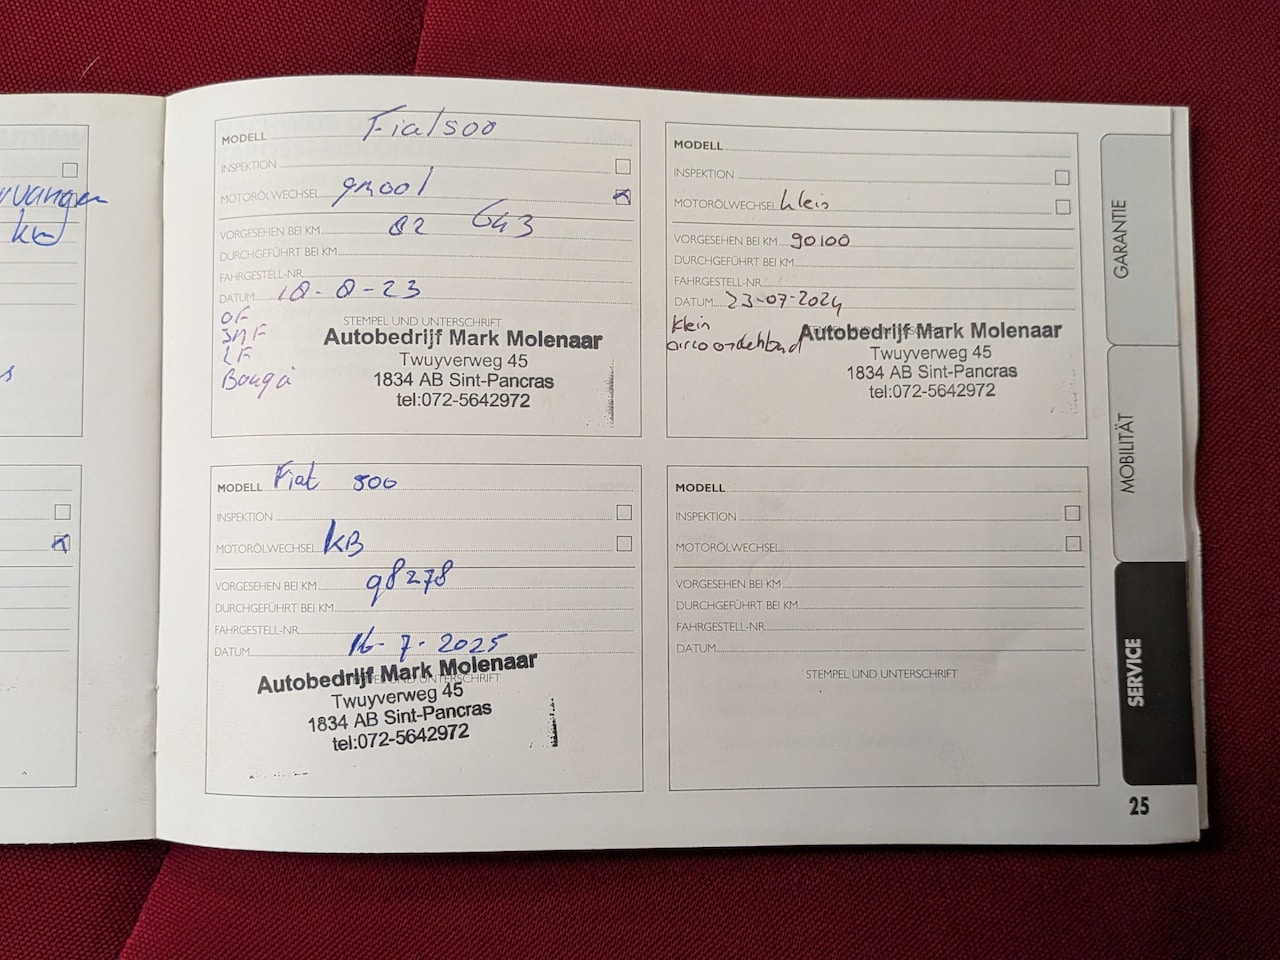 rvangen
km
s
MODELL Fiat 500
INSPEKTION
MOTORÖLWECHSEL groot
VORGESEHEN BEI KM 82 643
DURCHGEFÜHRT BEI KM
FAHRGESTELL-NR.
DATUM 18-8-23
OF
INF
LF
Bougi
STEMPEL UND UNTERSCHRIFT
Autobedrijf Mark Molenaar
Twuyverweg 45
1834 AB Sint-Pancras
tel:072-5642972
MODELL
INSPEKTION
MOTORÖLWECHSEL klein
VORGESEHEN BEI KM 90100
DURCHGEFÜHRT BEI KM
FAHRGESTELL-NR.
DATUM 23-07-2024
klein
airco onderhoud
Autobedrijf Mark Molenaar
Twuyverweg 45
1834 AB Sint-Pancras
tel:072-5642972
MODELL Fiat 500
INSPEKTION
MOTORÖLWECHSEL KB
VORGESEHEN BEI KM 98278
DURCHGEFÜHRT BEI KM
FAHRGESTELL-NR.
DATUM 16-7-2025
STEMPEL UND UNTERSCHRIFT
Autobedrijf Mark Molenaar
Twuyverweg 45
1834 AB Sint-Pancras
tel:072-5642972
MODELL
INSPEKTION
MOTORÖLWECHSEL
VORGESEHEN BEI KM
DURCHGEFÜHRT BEI KM
FAHRGESTELL-NR.
DATUM
STEMPEL UND UNTERSCHRIFT
GARANTIE
MOBILITÄT
SERVICE
25